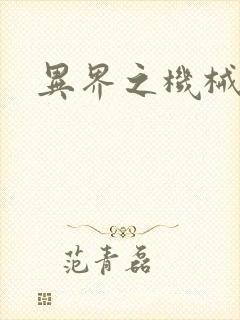 異界之機械
范青磊